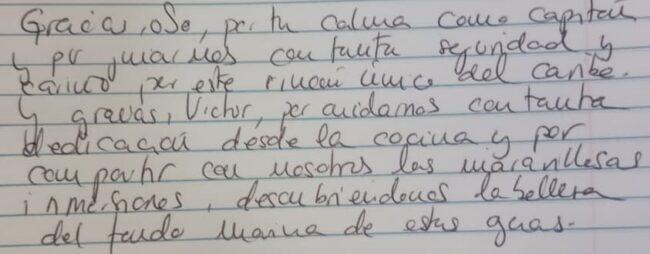 Gracias, Ose, por tu calma como capitán
y por guiarnos con tanta seguridad y
cariño por este rincón único del caribe.
Y gracias, Victor, por cuidarnos con tanta
dedicación desde la cocina y por
compartir con nosotros las maravillosas
inmersiones, descubriendonos la belleza
del fondo marino de estas guas.